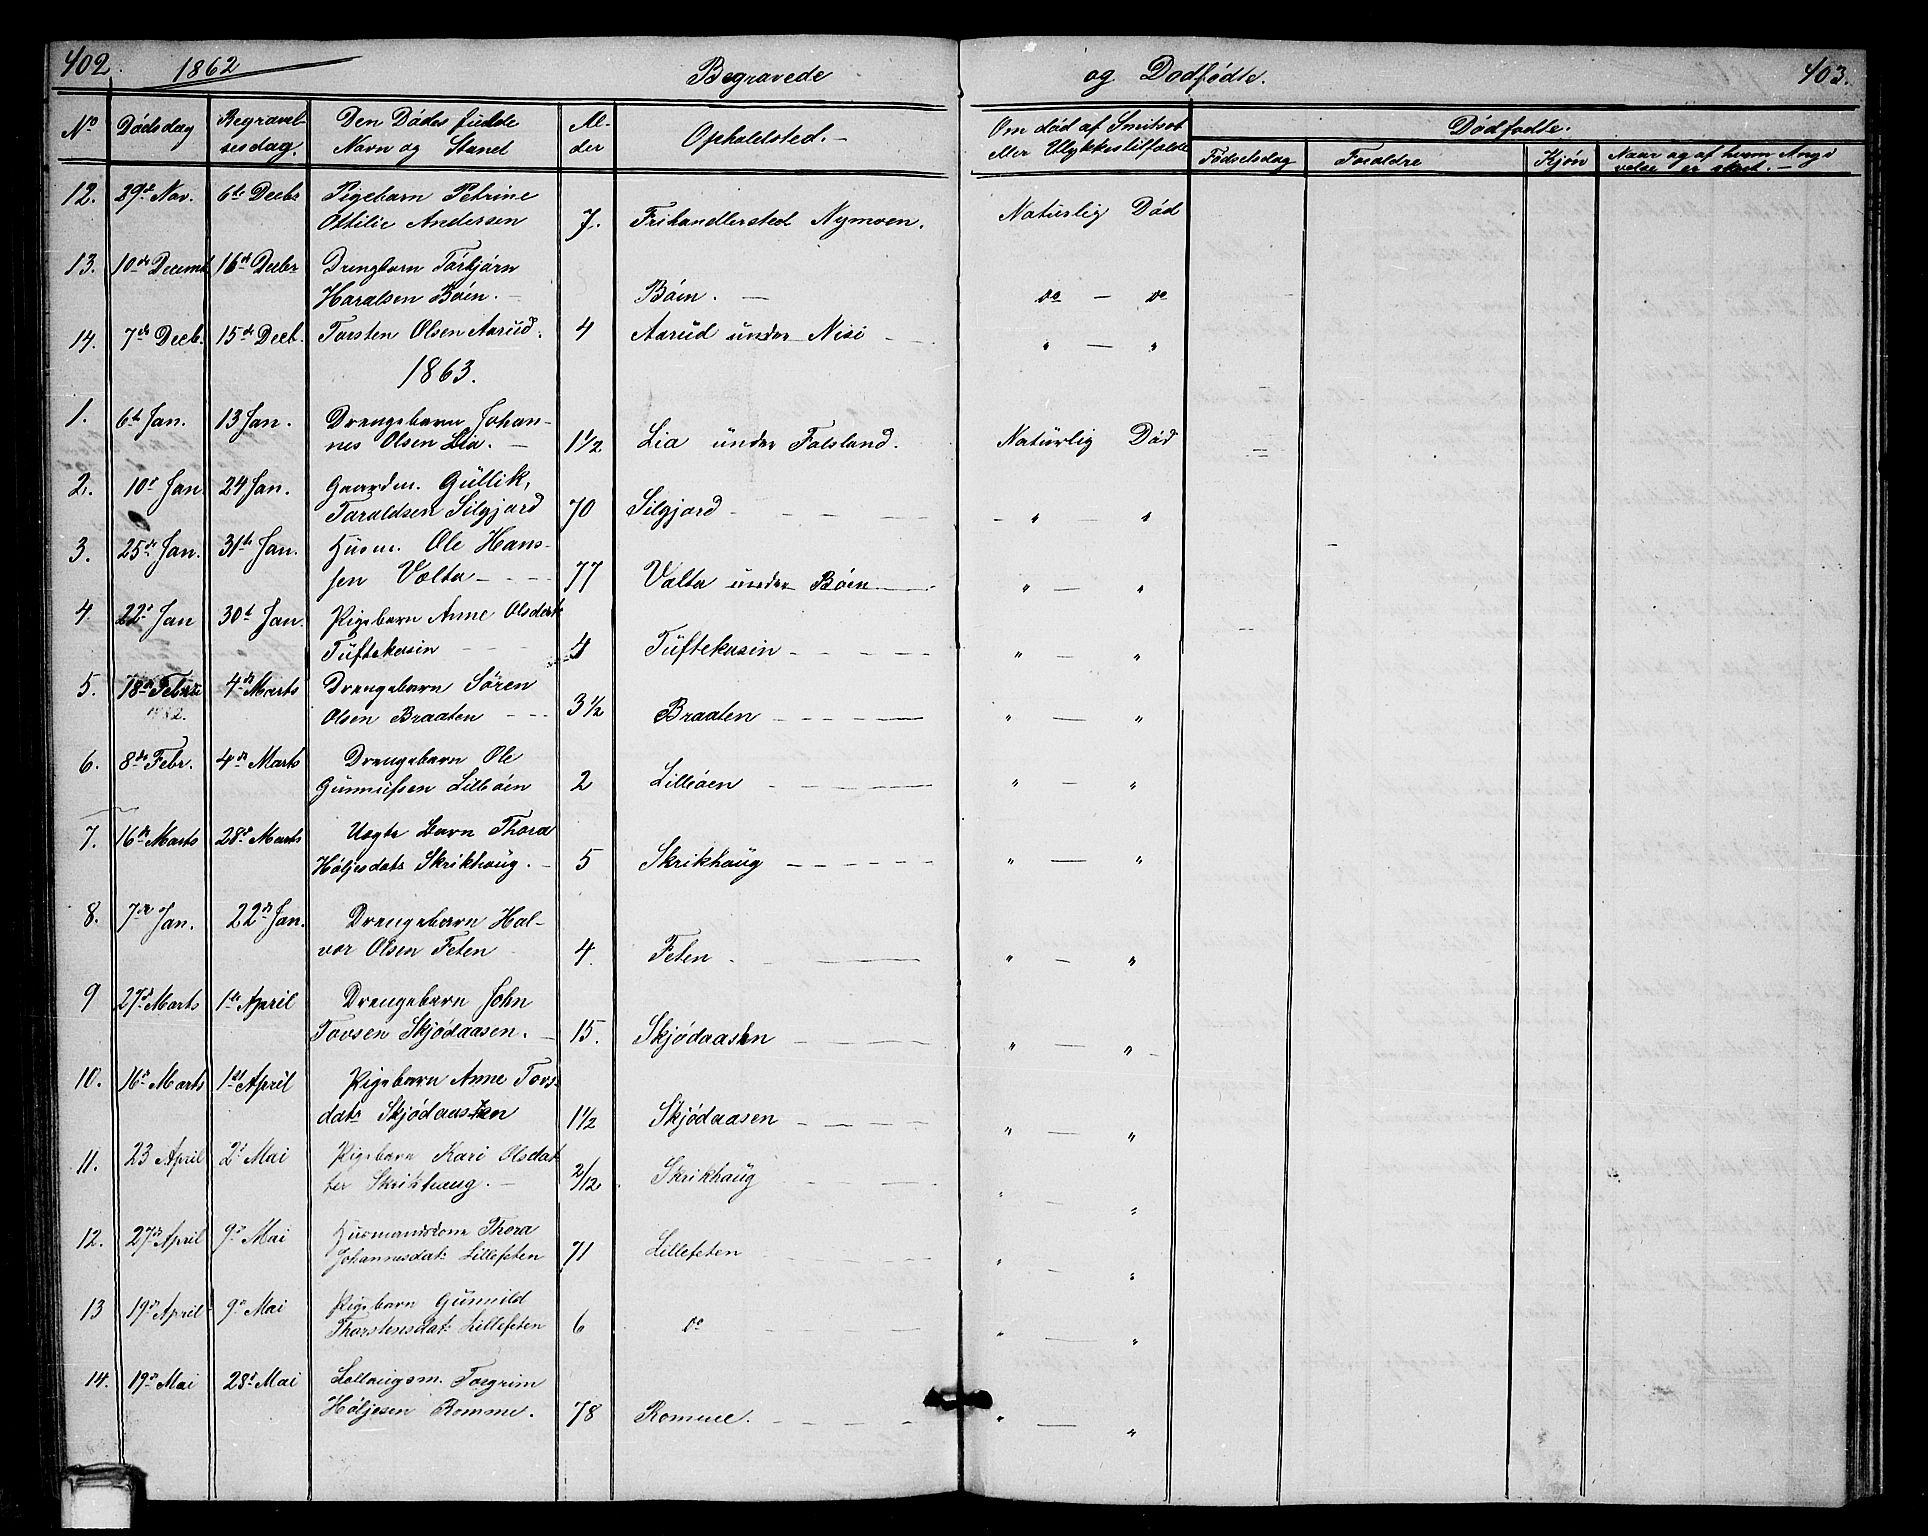 402. 1862 Begravede og Dødfødte. 403.
No Dødsdag Begravelsesdag. Den Dødes fulde Navn og Stand Alder Opholdsted. Om død af Smitsot eller Ulykkestilfælde Dødfødte.
Fødselsdag Forældre Kjøn Naar og af hvem Angivelse er skeet.
12. 29de Nov. 6te Decbr Pigebarn Petrine
Ottilie Andersen 7. Frihandlersted Nymoen. Naturlig Død
13. 10de Decemb 16de Decbr Drengbarn Torbjørn
Haralsen Bøen. Bøen. do do
14. 7de Decb. 15de Decb. Torsten Olsen Aarud. 4 Aarud under Nisi " "
1863.
1. 6te Jan. 13 Jan. Drengebarn Johan-
nes Olsen Lia. 1 1/2 Lia under Falsland. Naturlig Død
2. 10d Jan. 24 Jan. Gaardm. Gullik,
Taraldsen Silgjord 70 Silgjord " "
3. 25de Jan. 31te Jan. Husm. Ole Hans-
sen Vælta 77 Vælta under Bøen " "
4. 22d Jan 30d Jan. Pigebarn Anne Olsdert
Tuftekasin 4 Tuftekasin " "
5. 18de Febr 4de Marts Drengebarn Søren
1862. Olsen Braaten 3 1/2 Braaten " "
6. 8de Febr. 4de Marts Drengebarn Ole
Gunnufsen Lilleøen 2 Lilleøen " "
7. 16de Marts 28de Marts Uægte Barn Thora
Høljesdatr Skrikhaug. 5 Skrikhaug " "
8. 7de Jan. 22de Jan. Drengebarn Hal-
vor Olsen Feten 4. Feten " "
9 27d Marts 1ste April Drengebarn John
Tovsen Skjødaasen. 15. Skjødaasen " "
10. 16d Marts 1ste April Pigebarn Anne Tovs-
datr Skjødaasen 1 1/2 Skjødaasen " "
11. 23 April 2d Mai Pigebarn Kari Olsdat
ter Skrikhaug. 2/12 Skrikhaug " "
12. 27de April 9d Mai Husmandskone Thora
Johannesdatr Lillefeten 71 Lillefeten " "
13 19de April 9d Mai Pigebarn Gunnild
Thorstensdatr Lillefeten 6 do " "
14. 19d Mai 28d Mai Lottaugsm. Torgrim
Høljesen Romme. 78 Romme. " "